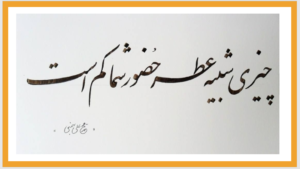 چیزی شبیه عطر حضور شما کم است